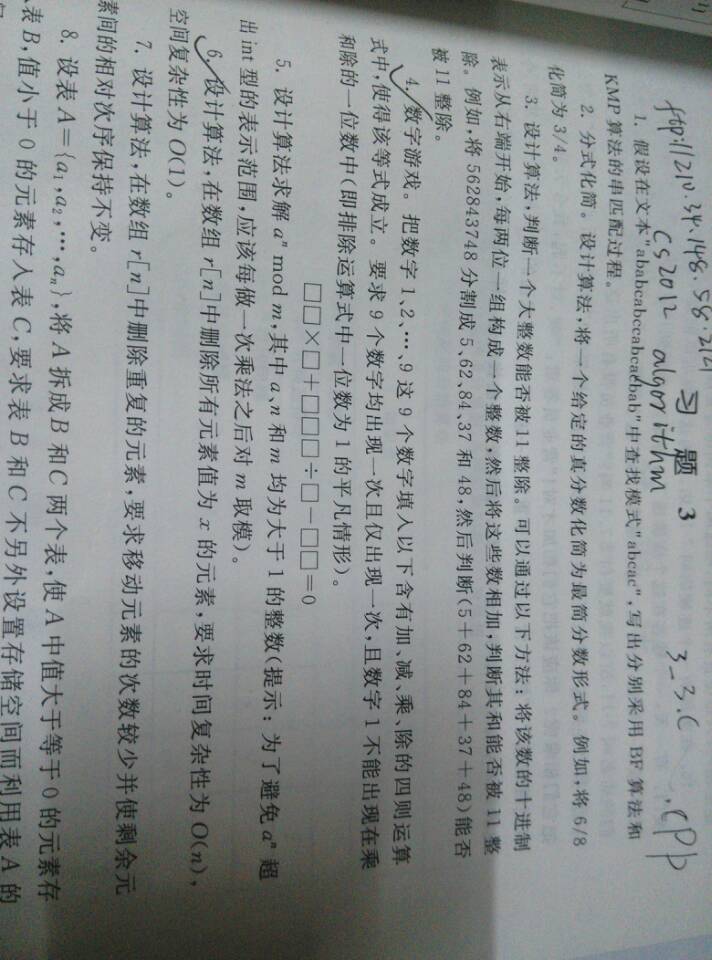 ftp://210.34.148.58:2121
CS2012 algorithm
3_3.C
.CPP
习 题 3
1. 假设在文本"ababcabccabcacbab"中查找模式"abcac",写出分别采用 BF 算法和
KMP 算法的串匹配过程。
2. 分式化简。设计算法,将一个给定的真分数化简为最简分数形式。例如,将 6/8
化简为 3/4。
3. 设计算法,判断一个大整数能否被 11 整除。可以通过以下方法:将该数的十进制
表示从右端开始,每两位一组构成一个整数,然后将这些数相加,判断其和能否被 11 整
除。例如,将 562843748 分割成 5、62、84、37 和 48,然后判断(5+62+84+37+48)能否
被 11 整除。
4. 数字游戏。把数字 1、2、…、9 这 9 个数字填入以下含有加、减、乘、除的四则运算
式中,使得该等式成立。要求 9 个数字均出现一次且仅出现一次,且数字 1 不能出现在乘
和除的一位数中(即排除运算式中一位数为 1 的平凡情形)。
□□×□+□□□÷□-□□=0
5. 设计算法求解 aⁿ mod m,其中 a、n 和 m 均为大于 1 的整数(提示:为了避免 aⁿ 超
出 int 型的表示范围,应该每做一次乘法之后对 m 取模)。
6. 设计算法,在数组 r[n]中删除所有元素值为 x 的元素,要求时间复杂性为 O(n),
空间复杂性为 O(1)。
7. 设计算法,在数组 r[n]中删除重复的元素,要求移动元素的次数较少并使剩余元
素间的相对次序保持不变。
8. 设表 A={a₁,a₂,…,aₙ},将 A 拆成 B 和 C 两个表,使 A 中值大于等于 0 的元素存
表 B,值小于 0 的元素存入表 C,要求表 B 和 C 不另外设置存储空间而利用表 A 的